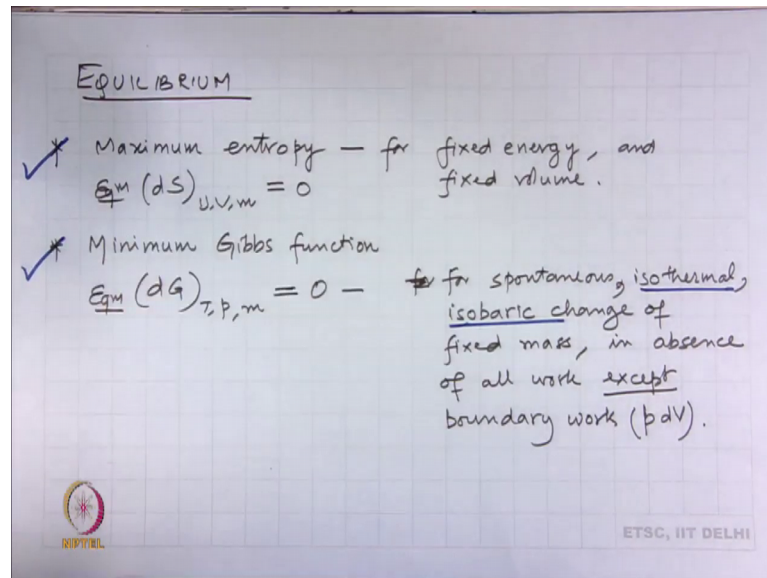 EQUILIBRIUM
* Maximum entropy — for fixed energy, and
fixed volume.
Eqm (dS)U,V,m = 0
* Minimum Gibbs function
Eqm (dG)T,p,m = 0 — for spontaneous, isothermal,
isobaric change of
fixed mass, in absence
of all work except
boundary work (pdV).
NPTEL
ETSC, IIT DELHI